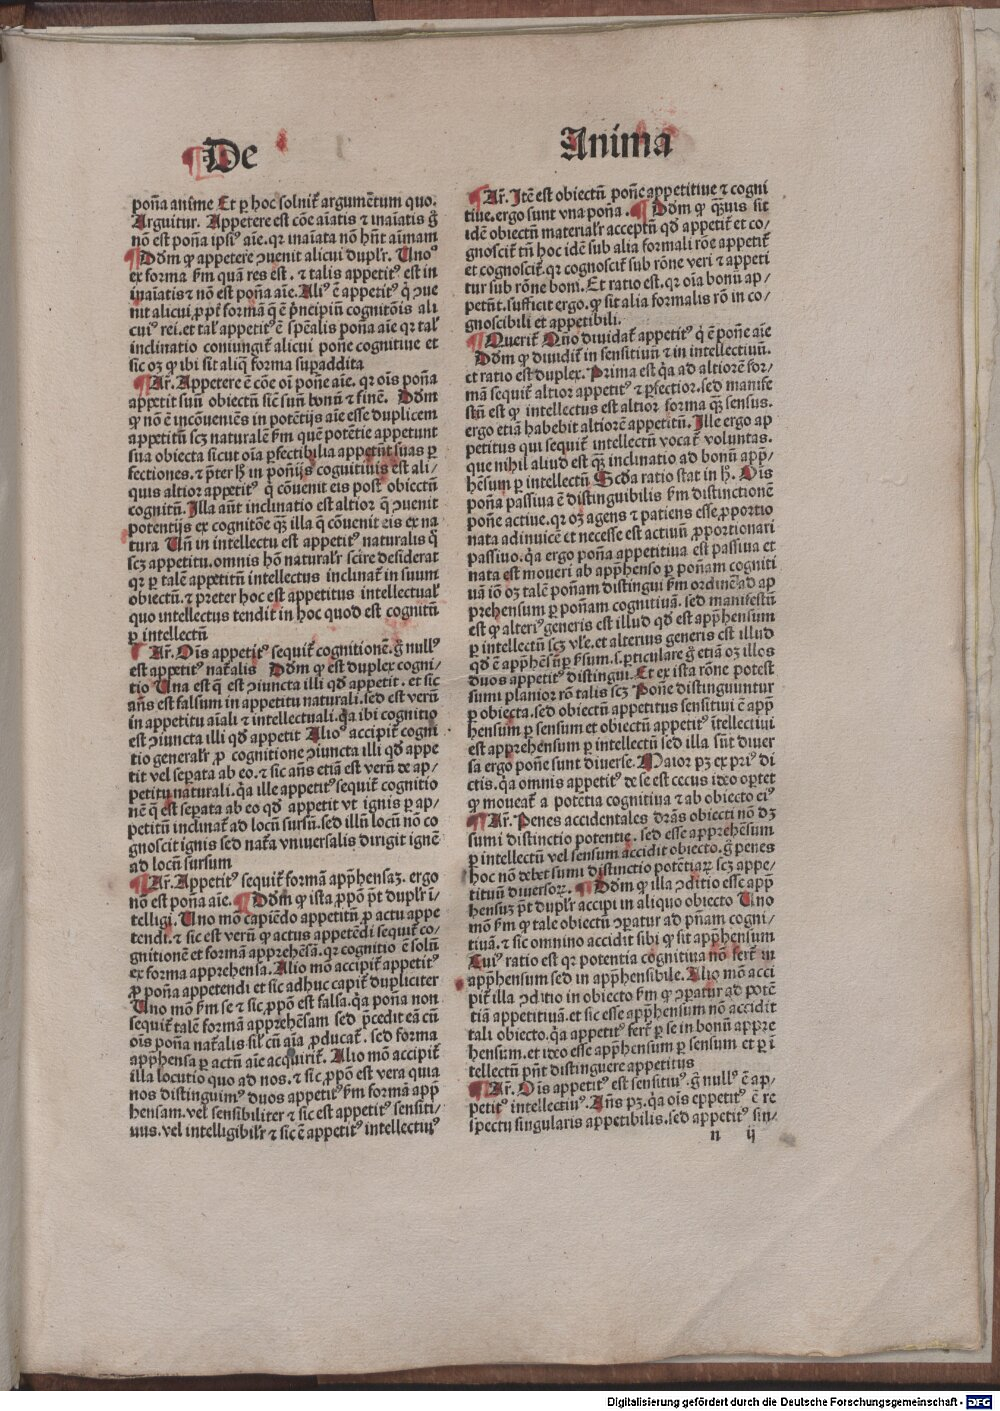 De
Anima
poña anime Et ꝑ hoc soluit̃ argumẽtum quo.
Arguitur. Appetere est cõe aĩatis ⁊ inaĩatis g̃
nõ est poña ipsiꝰ aĩe. qꝛ inaĩata nõ hñt aĩmam
¶ Dõm ꝙ appetere ꝯuenit alicui dupłr. Unoꝰ
ex forma ẜm quã res est. ⁊ talis appetitꝰ est in
inaĩatis ⁊ nõ est poña aĩe. Aliꝰ ẽ appetitꝰ q̇ ꝯue
nit alicui ꝓpt̃ formã q̃ ẽ p̃ncipiũ cognitõis ali
cuiꝰ rei. et tał appetitꝰ ẽ spẽalis poña aĩe qꝛ tał
inclinatio coniungit̃ alicui poñe cognitiue et
sic oꝫ ꝙ ibi sit aliq̃ forma supaddita
¶ Ar̃. Appetere ẽ cõe oĩ poñe aĩe. qꝛ oĩs poña
appetit suũ obiectũ sicut suũ bonũ ⁊ finẽ. Dõm
ꝙ nõ ẽ incõueniẽs in potẽtijs aĩe esse duplicem
appetitũ scꝫ naturalẽ ẜm quẽ potẽtie appetunt
sua obiecta sicut oĩa ꝑfectibilia appetũt suas ꝑ
fectiones. ⁊ p̃ter hͦ in poñijs cognitiuis est ali/
quis altior appetitꝰ q̇ cõuenit eis post obiectũ
cognitũ. Illa aũt inclinatio est altior q̃ ꝯuenit
potentijs ex cognitõe qꝫ̃ illa q̃ cõuenit eis ex na
tura Uñ in intellectu est appetitꝰ naturalis q̇
scꝫ appetitu. omnis hõ naturałr scire desiderat
qꝛ ꝑ talẽ appetitũ intellectus inclinat̃ in suum
obiectũ. ⁊ preter hoc est appetitus intellectuał
quo intellectus tendit in hoc quod est cognitũ
ꝑ intellectũ
¶ Ar̃. Oĩs appetitꝰ sequit̃ cognitionẽ. g̃ nullꝰ
est appetitꝰ nat̃alis Dõm ꝙ est duplex cogni/
tio Una est q̃ est ꝯiuncta illi qd̃ appetit. et sic
añs est falsum in appetitu naturali. sed est verũ
in appetitu aĩali ⁊ intellectuali. q̃a ibi cognitio
est ꝯiuncta illi qd̃ appetit Alioꝰ accipit̃ cogni
tio generałr ꝓ cognitione ꝯiuncta illi qd̃ appe
tit vel sepata ab eo. ⁊ sic añs etiã est verũ de ap/
petitu naturali. q̃a ille appetitꝰ sequit̃ cognitio
nẽ q̃ est sepata ab eo qd̃ appetit vt ignis ꝑ ap/
petitũ inclinat̃ ad locũ sursũ. sed illũ locũ nõ co
gnoscit ignis sed nat̃a vniuersalis dirigit ignẽ
ad locũ sursum
¶ Ar̃. Appetitꝰ sequit̃ formã app̃hensaꝫ. ergo
nõ est poña aĩe. ¶ Dõm ꝙ ista ꝓpõ põt dupłr ĩ/
telligi. Uno mõ capiẽdo appetitũ ꝓ actu appe
tendi. ⁊ sic est verũ ꝙ actus appetẽdi sequit̃ co/
gnitionẽ et formã apprehẽsã. qꝛ cognitio ẽ solũ
ex forma apprehensa. Alio mõ accipit̃ appetitꝰ
ꝓ poña appetendi et sic adhuc capit̃ dupliciter
Uno mõ ẜm se ⁊ sic ꝓpõ est falsa. q̃a poña non
sequit̃ talẽ formã apprehẽsam sed p̃cedit eã cũ
oĩs poña nat̃alis siĩ cũ aĩa ꝓducat̃. sed forma
app̃hensa ꝑ actũ aĩe acquirit̃. Alio mõ accipit̃
illa locutio quo ad nos. ⁊ sic ꝓpõ est vera quia
nos distinguimꝰ duos appetitꝰ ẜm formã app̃
hensam. vel sensibiliter ⁊ sic est appetitꝰ sensiti/
uus. vel intelligibiłr ⁊ sic ẽ appetitꝰ intellectiuꝰ
¶ Ar̃. Itẽ est obiectũ poñe appetitiue ⁊ cogni
tiue. ergo sunt vna poña. ¶ Dõm ꝙ qꝫ̃uis sit
idẽ obiectũ materiałr acceptũ qd̃ appetit̃ et co/
gnoscit̃ tñ hoc idẽ sub alia formali rõe appetit̃
et cognoscit̃. qꝛ cognoscit̃ sub rõne veri ⁊ appeti
tur sub rõne boni. Et ratio est. qꝛ oĩa bonũ ap/
petũt. sufficit ergo. ꝙ sit alia formalis rõ in co/
gnoscibili et appetibili.
¶ Querit̃ Quõ diuidat̃ appetitꝰ q̇ ẽ poñe aĩe
Dõm ꝙ diuidit̃ in sensitiuũ ⁊ in intellectiuũ.
et ratio est duplex. Prima est q̃a ad altiorẽ for/
mã sequit̃ altior appetitꝰ ⁊ ꝑfectior. sed manife
stũ est ꝙ intellectus est altior forma qꝫ̃ sensus.
ergo etiã habebit altiorẽ appetitũ. Ille ergo ap
petitus qui sequit̃ intellectũ vocat̃ voluntas.
que nihil aliud est qꝫ̃ inclinatio ad bonũ app̃/
hẽsum ꝑ intellectũ Scd̃a ratio stat in hͦ. Oĩs
poña passiua ẽ distinguibilis ẜm distinctionẽ
poñe actiue. qꝛ oꝫ agens ⁊ patiens esse ꝓportio
nata adinuicẽ et necesse est actiuũ ꝓportionari
passiuo. q̃a ergo poña appetitiua est passiua et
nata est moueri ab app̃henso ꝑ poñam cogniti
uã iõ oꝫ talẽ poñam distingui ẜm ordinẽ ad ap
prehensum ꝑ poñam cognitiuã. sed manifestũ
est ꝙ alteriꝰ generis est illud qd̃ est app̃hensum
ꝑ intellectũ scꝫ vłe. et alterius generis est illud
qd̃ ẽ app̃hẽsũ ꝑ sẽsum. s. ꝑticulare g̃ etiã oꝫ illos
duos appetitꝰ distingui. Et ex ista rõne potest
sumi planior rõ talis scꝫ Poñe distinguuntur
ꝑ obiecta. sed obiectũ appetitus sensitiui ẽ app̃
hensum ꝑ sensum et obiectũ appetitꝰ ĩtellectiui
est apprehensum ꝑ intellectũ sed illa sũt diuer
sa ergo poñe sunt diuerse. Maior pꝫ ex priꝰ di
ctis. q̃a omnis appetitꝰ de se est cecus ideo oꝑtet
ꝙ moueat̃ a potẽtia cognitiua ⁊ ab obiecto eiꝰ
¶ Ar̃. Penes accidentales dr̃as obiecti nõ dꝫ
sumi distinctio potentie. sed esse apprehẽsum
ꝑ intellectũ vel sensum accidit obiecto. g̃ penes
hoc nõ debet sumi distinctio potẽtiarꝫ scꝫ appe/
tituũ diuersorꝫ. ¶ Dõm ꝙ illa ꝯditio esse app̃
hensuꝫ põt dupłr accipi in aliquo obiecto Uno
mõ ẜm ꝙ tale obiectũ ꝯparatur ad pñam cogni/
tiuã. ⁊ sic omnino accidit sibi ꝙ sit app̃hensum
Cuiꝰ ratio est qꝛ potentia cognitiua nõ fert̃ in
app̃hensum sed in app̃hensibile. Alio mõ acci
pit̃ illa ꝯditio in obiecto ẜm ꝙ ꝯparatur ad potẽ
tiã appetitiuã. et sic esse app̃hensum nõ accidit
tali obiecto. q̃a appetitꝰ fert̃ ꝑ se in bonũ appre
hensum. et ideo esse app̃hensum ꝑ sensum et ꝑ ĩ
tellectũ pñt distinguere appetitus
¶ Ar̃. Oĩs appetitꝰ est sensitiuꝰ. g̃ nullꝰ ẽ ap/
petitꝰ intellectiuꝰ. Añs pꝫ. q̃a oĩs appetitꝰ ẽ re
spectu singularis appetibilis. sed appetitꝰ sin/
n ij
Digitalisierung gefördert durch die Deutsche Forschungsgemeinschaft - DFG